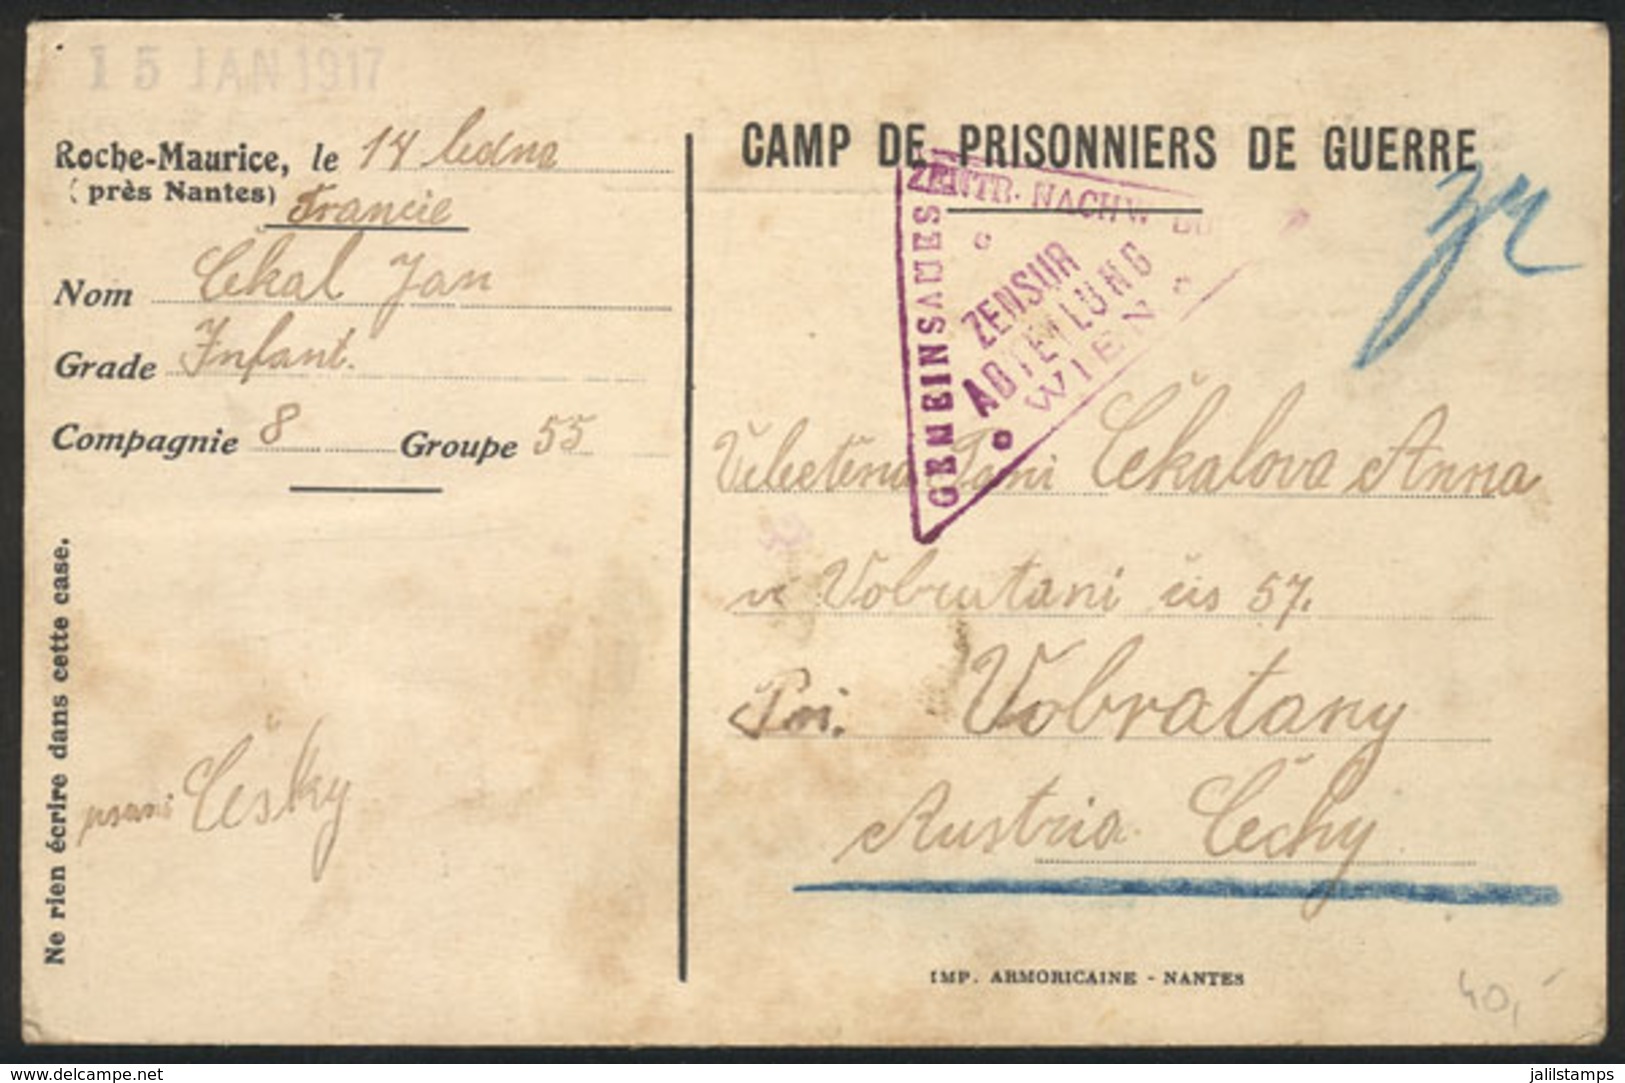 15 JAN 1917
Roche-Maurice, le 14 ledna
(près Nantes)
Francie
Nom Čekal Jan
Grade Infant.
Compagnie 8 Groupe 55
Ne rien écrire dans cette case.
psani Česky
CAMP DE PRISONNIERS DE GUERRE
ZENTR. NACHW. BU
GEMEINSAMES
ZENSUR
ABTEILUNG
WIEN
Velectena Pani Čekalova Anna
v Vobratani čis 57.
Pri. Vobratany
Austria Čechy
IMP. ARMORICAINE - NANTES
40,-
www.delcampe.net
jalilstamps